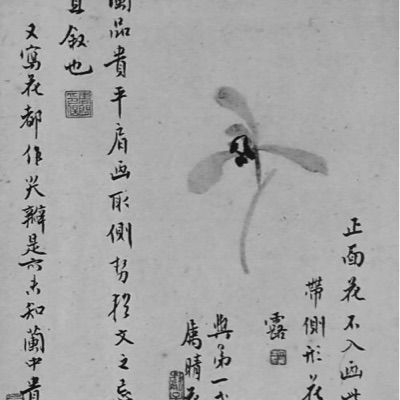 正面花不入画
帶側形花
露
與第一
属晴
蘭品貴平肩画取側勢 文之忌
宜叙也
又寫花都作尖瓣是亦未知蘭中貴